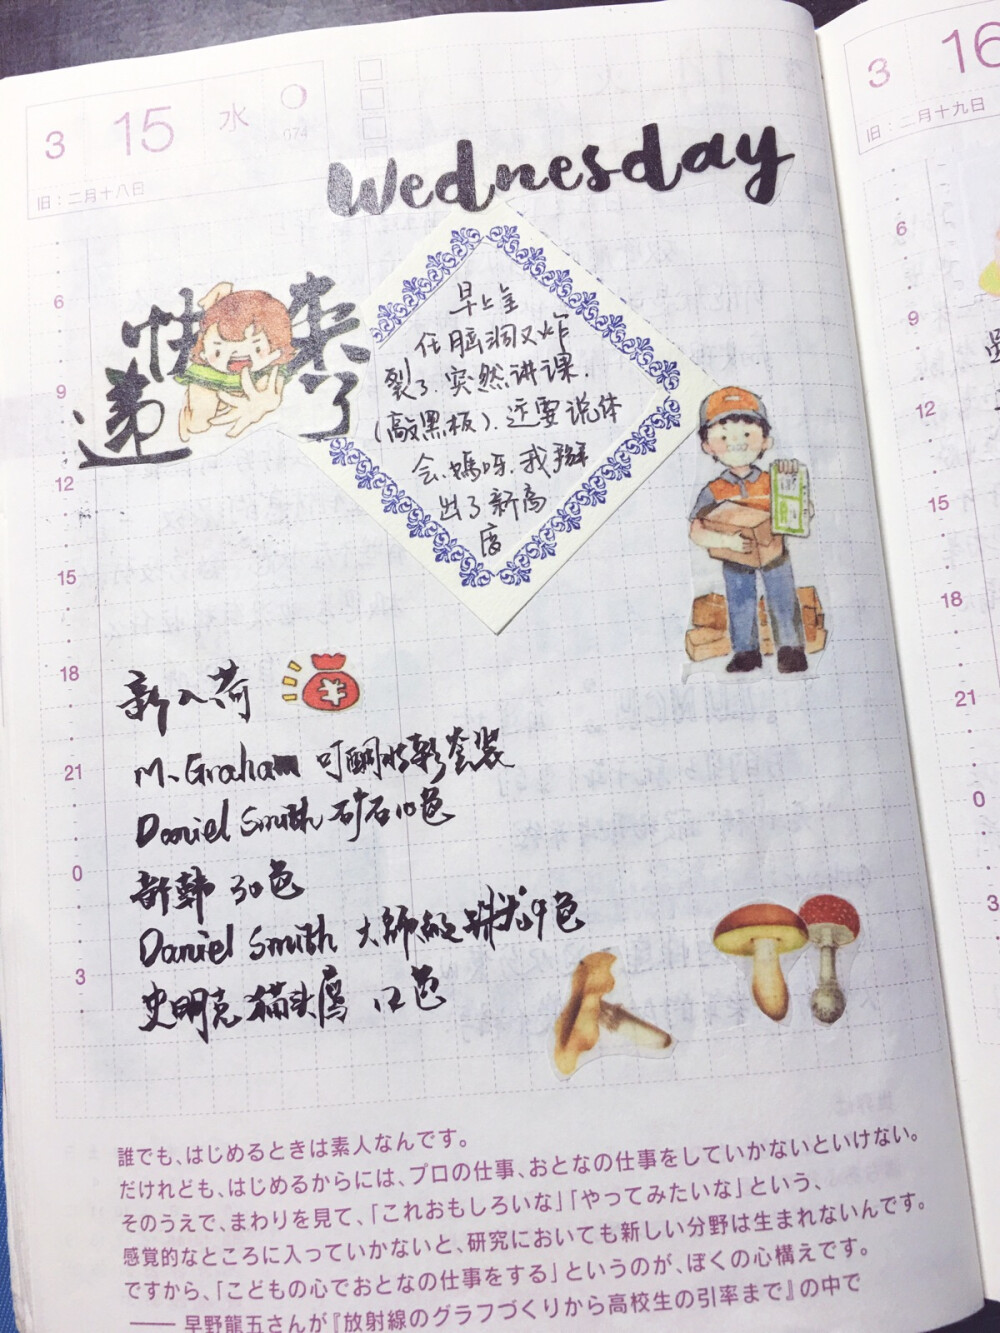 3 15 水
074
旧：二月十八日
Wednesday
快来
递了
早上全
任脑洞又炸
裂了.突然讲课.
(敲黑板).还要说体
会.妈呀.我掰
出了新高
度
6
9
12
15
18
21
0
3
新入荷
¥
M. Graham 叮酮特彩套装
Daniel Smith 矿石10色
新韩 30色
Daniel Smith 大师的 珠光9色
史明克 猫头鹰 12色
誰でも、はじめるときは素人なんです。
だけれども、はじめるからには、プロの仕事、おとなの仕事をしていかないといけない。
そのうえで、まわりを見て、「これおもしろいな」「やってみたいな」という、
感覚的なところに入っていかないと、研究においても新しい分野は生まれないんです。
ですから、「こどもの心でおとなの仕事をする」というのが、ぼくの心構えです。
—— 早野龍五さんが『放射線のグラフづくりから高校生の引率まで』の中で
3 16
旧：二月十九日
6
9
12
15
18
21
0
3